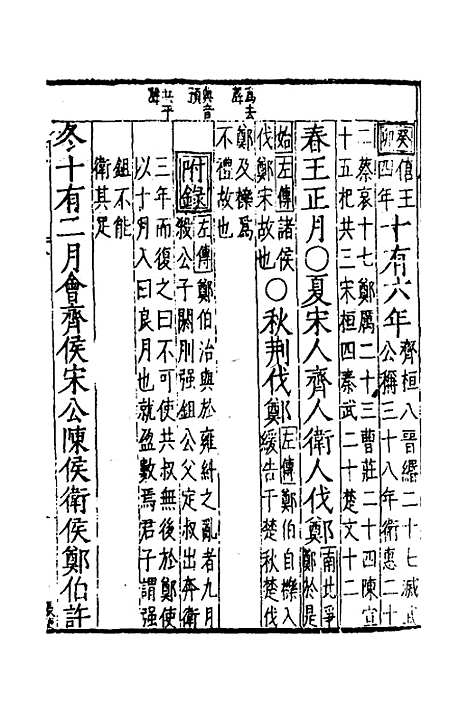 爲去聲
與音預
共平聲
癸卯僖王四年十有六年齊桓八晉緡二十七滅武公稱三十八年衛惠二十
二蔡哀十七鄭厲二十三曹莊二十四陳宣
十五杞共三宋桓四秦武二十楚文十二
春王正月〇夏宋人齊人衛人伐鄭南北爭鄭於是
始左傳諸侯伐鄭宋故也〇秋荆伐鄭左傳鄭伯自櫟入緩告于楚秋楚伐
鄭及櫟爲不禮故也
附錄左傳鄭伯治與於雍糾之亂者九月殺公子閼刖强鉏公父定叔出奔衛
三年而復之曰不可使共叔無後於鄭使
以十月入曰良月也就盈數焉君子謂强
鉏不能衛其足
冬十有二月會齊侯宋公陳侯衛侯鄭伯許